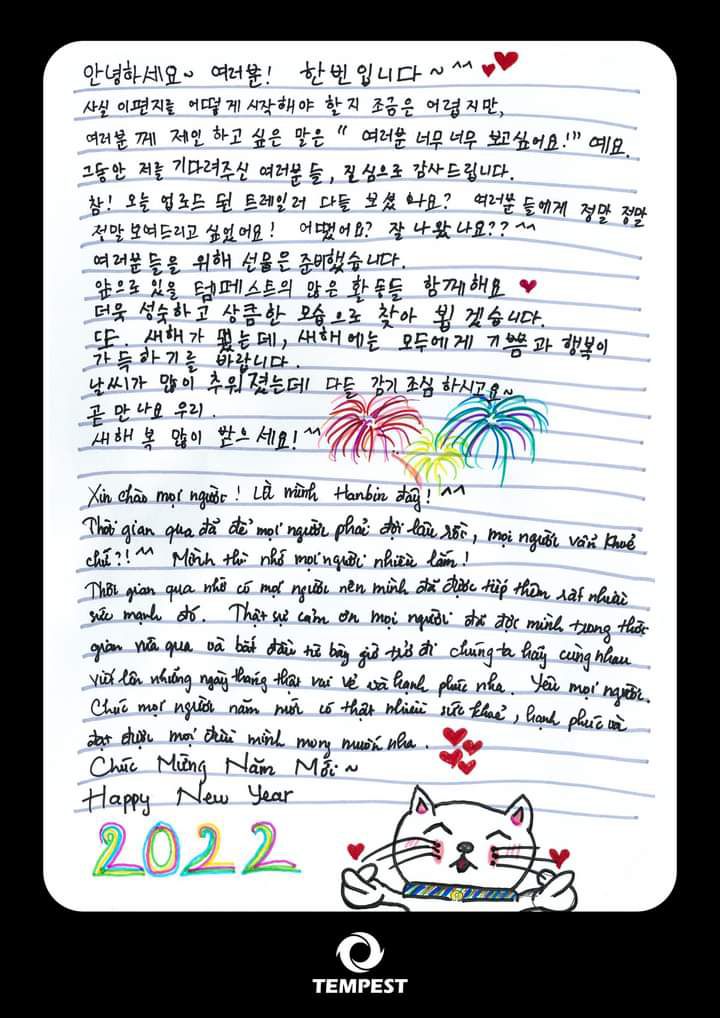 안녕하세요~ 여러분! 한빈입니다~ ^^
사실 이편지를 어떻게 시작해야 할지 조금은 어렵지만,
여러분께 제인 하고 싶은 말은 " 여러분 너무너무 보고싶어요!" 예요.
그동안 저를 기다려주신 여러분들, 진심으로 감사드립니다.
참! 오늘 업로드 된 트레일러 다들 보셨나요? 여러분들에게 정말 정말
정말 보여드리고 싶었어요! 어땠어요? 잘 나왔나요?? ^^
여러분들을 위해 선물은 준비했습니다.
앞으로 있을 템페스트의 많은 활동들 함께해요
더욱 성숙하고 상큼한 모습으로 찾아 뵙겠습니다.
또. 새해가 됐는데, 새해에는 모두에게 기쁨과 행복이
가득하기를 바랍니다.
날씨가 많이 추워졌는데 다들 감기 조심하시고요~
곧 만나요 우리.
새해 복 많이 받으세요! ^^
Xin chào mọi người! Là mình Hanbin đây! ^^
Thời gian qua đã để mọi người phải đợi lâu rồi, mọi người vẫn khoẻ
chứ?! ^^ Mình thì nhớ mọi người nhiều lắm!
Thời gian qua nhờ có mọi người nên mình đã được tiếp thêm rất nhiều
sức mạnh đó. Thật sự cảm ơn mọi người đã đợi mình trong thời
gian vừa qua và bắt đầu từ bây giờ trở đi chúng ta hãy cùng nhau
viết lên những ngày tháng thật vui vẻ và hạnh phúc nha. Yêu mọi người.
Chúc mọi người năm mới có thật nhiều sức khoẻ, hạnh phúc và
đạt được mọi điều mình mong muốn nha.
Chúc Mừng Năm Mới ~
Happy New Year
2022
TEMPEST